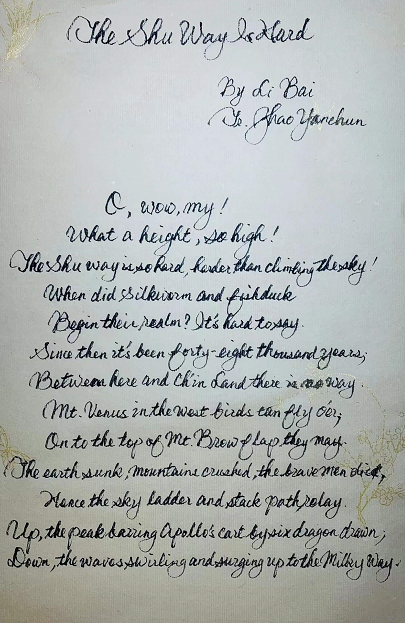 The Shu Way Is Hard
By Li Bai
Tr. Zhao Yanchun
O, wow, my!
What a height, so high!
The Shu way is so hard, harder than climbing the sky!
When did Silkworm and Fishduck
Begin their realm? It's hard to say.
Since then it's been forty-eight thousand years;
Between here and Ch'in Land there is no way.
Mt. Venus in the west birds can fly o'er;
On to the top of Mt. Brow flap they may.
The earth sunk, mountains crushed, the brave men died,
Hence the sky ladder and stack path
Up, the peak barring Apollo's cart by six dragon drawn;
Down, the waves swirling and surging up to the Milky Way.